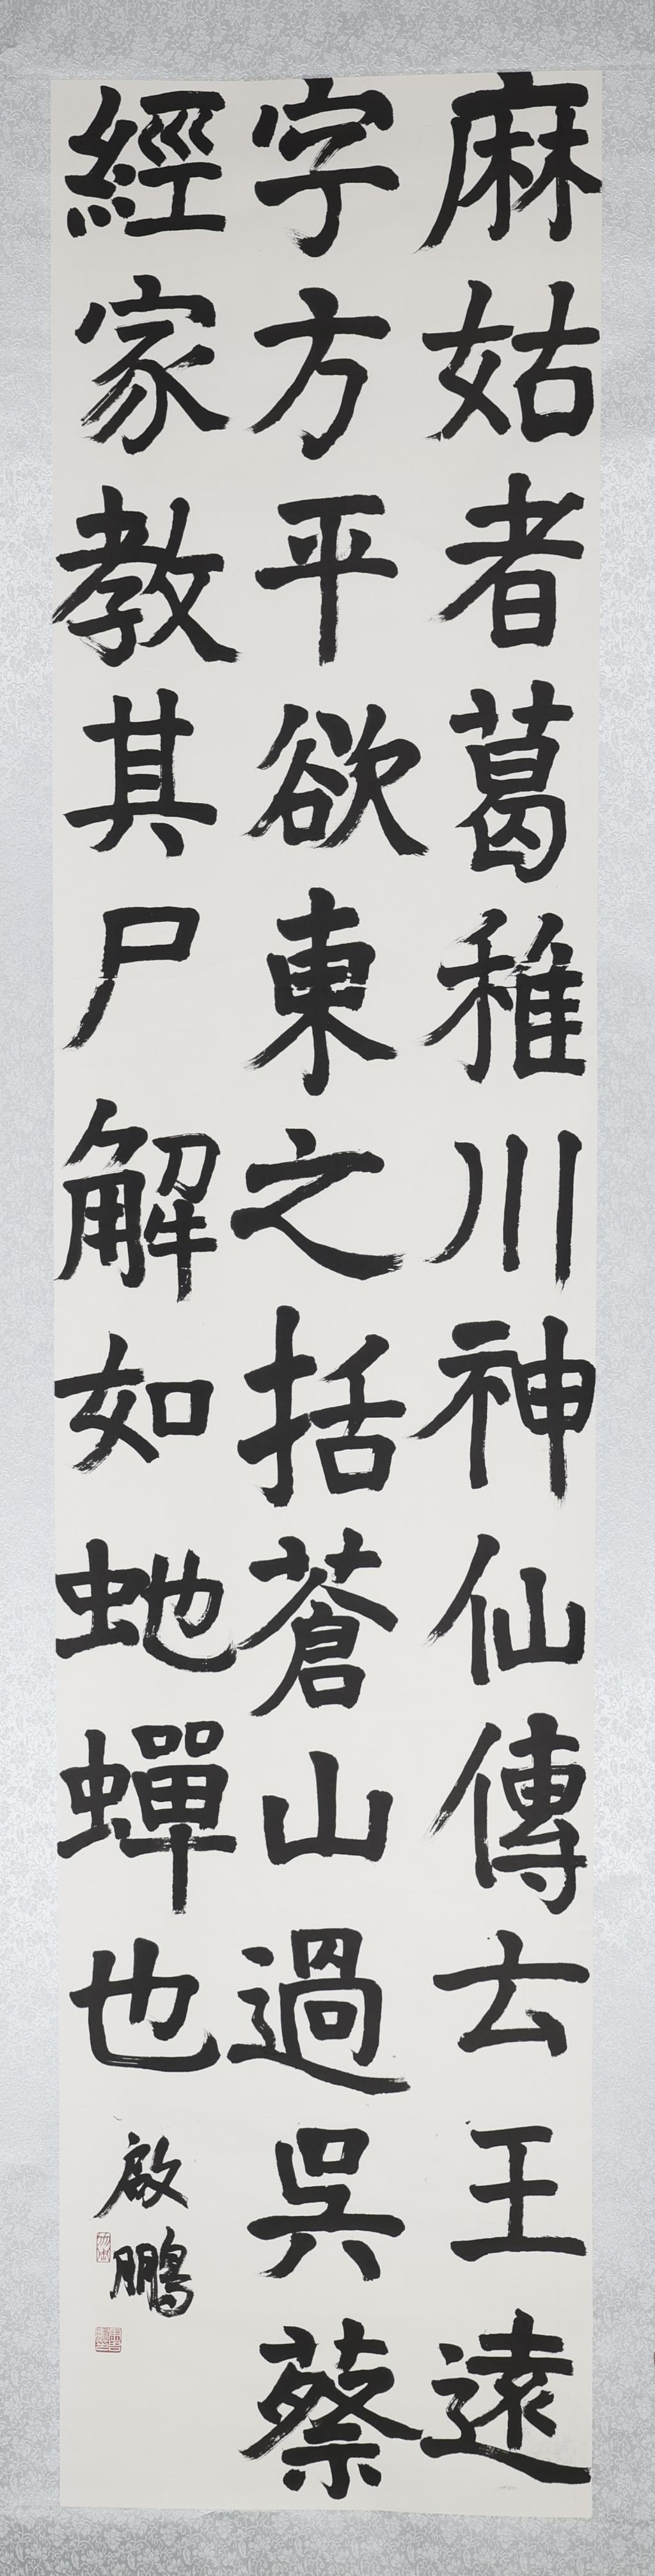 麻姑者葛稚川神仙傳云王遠
字方平欲東之括蒼山過吳蔡
經家教其尸解如虵蟬也
啟鵬